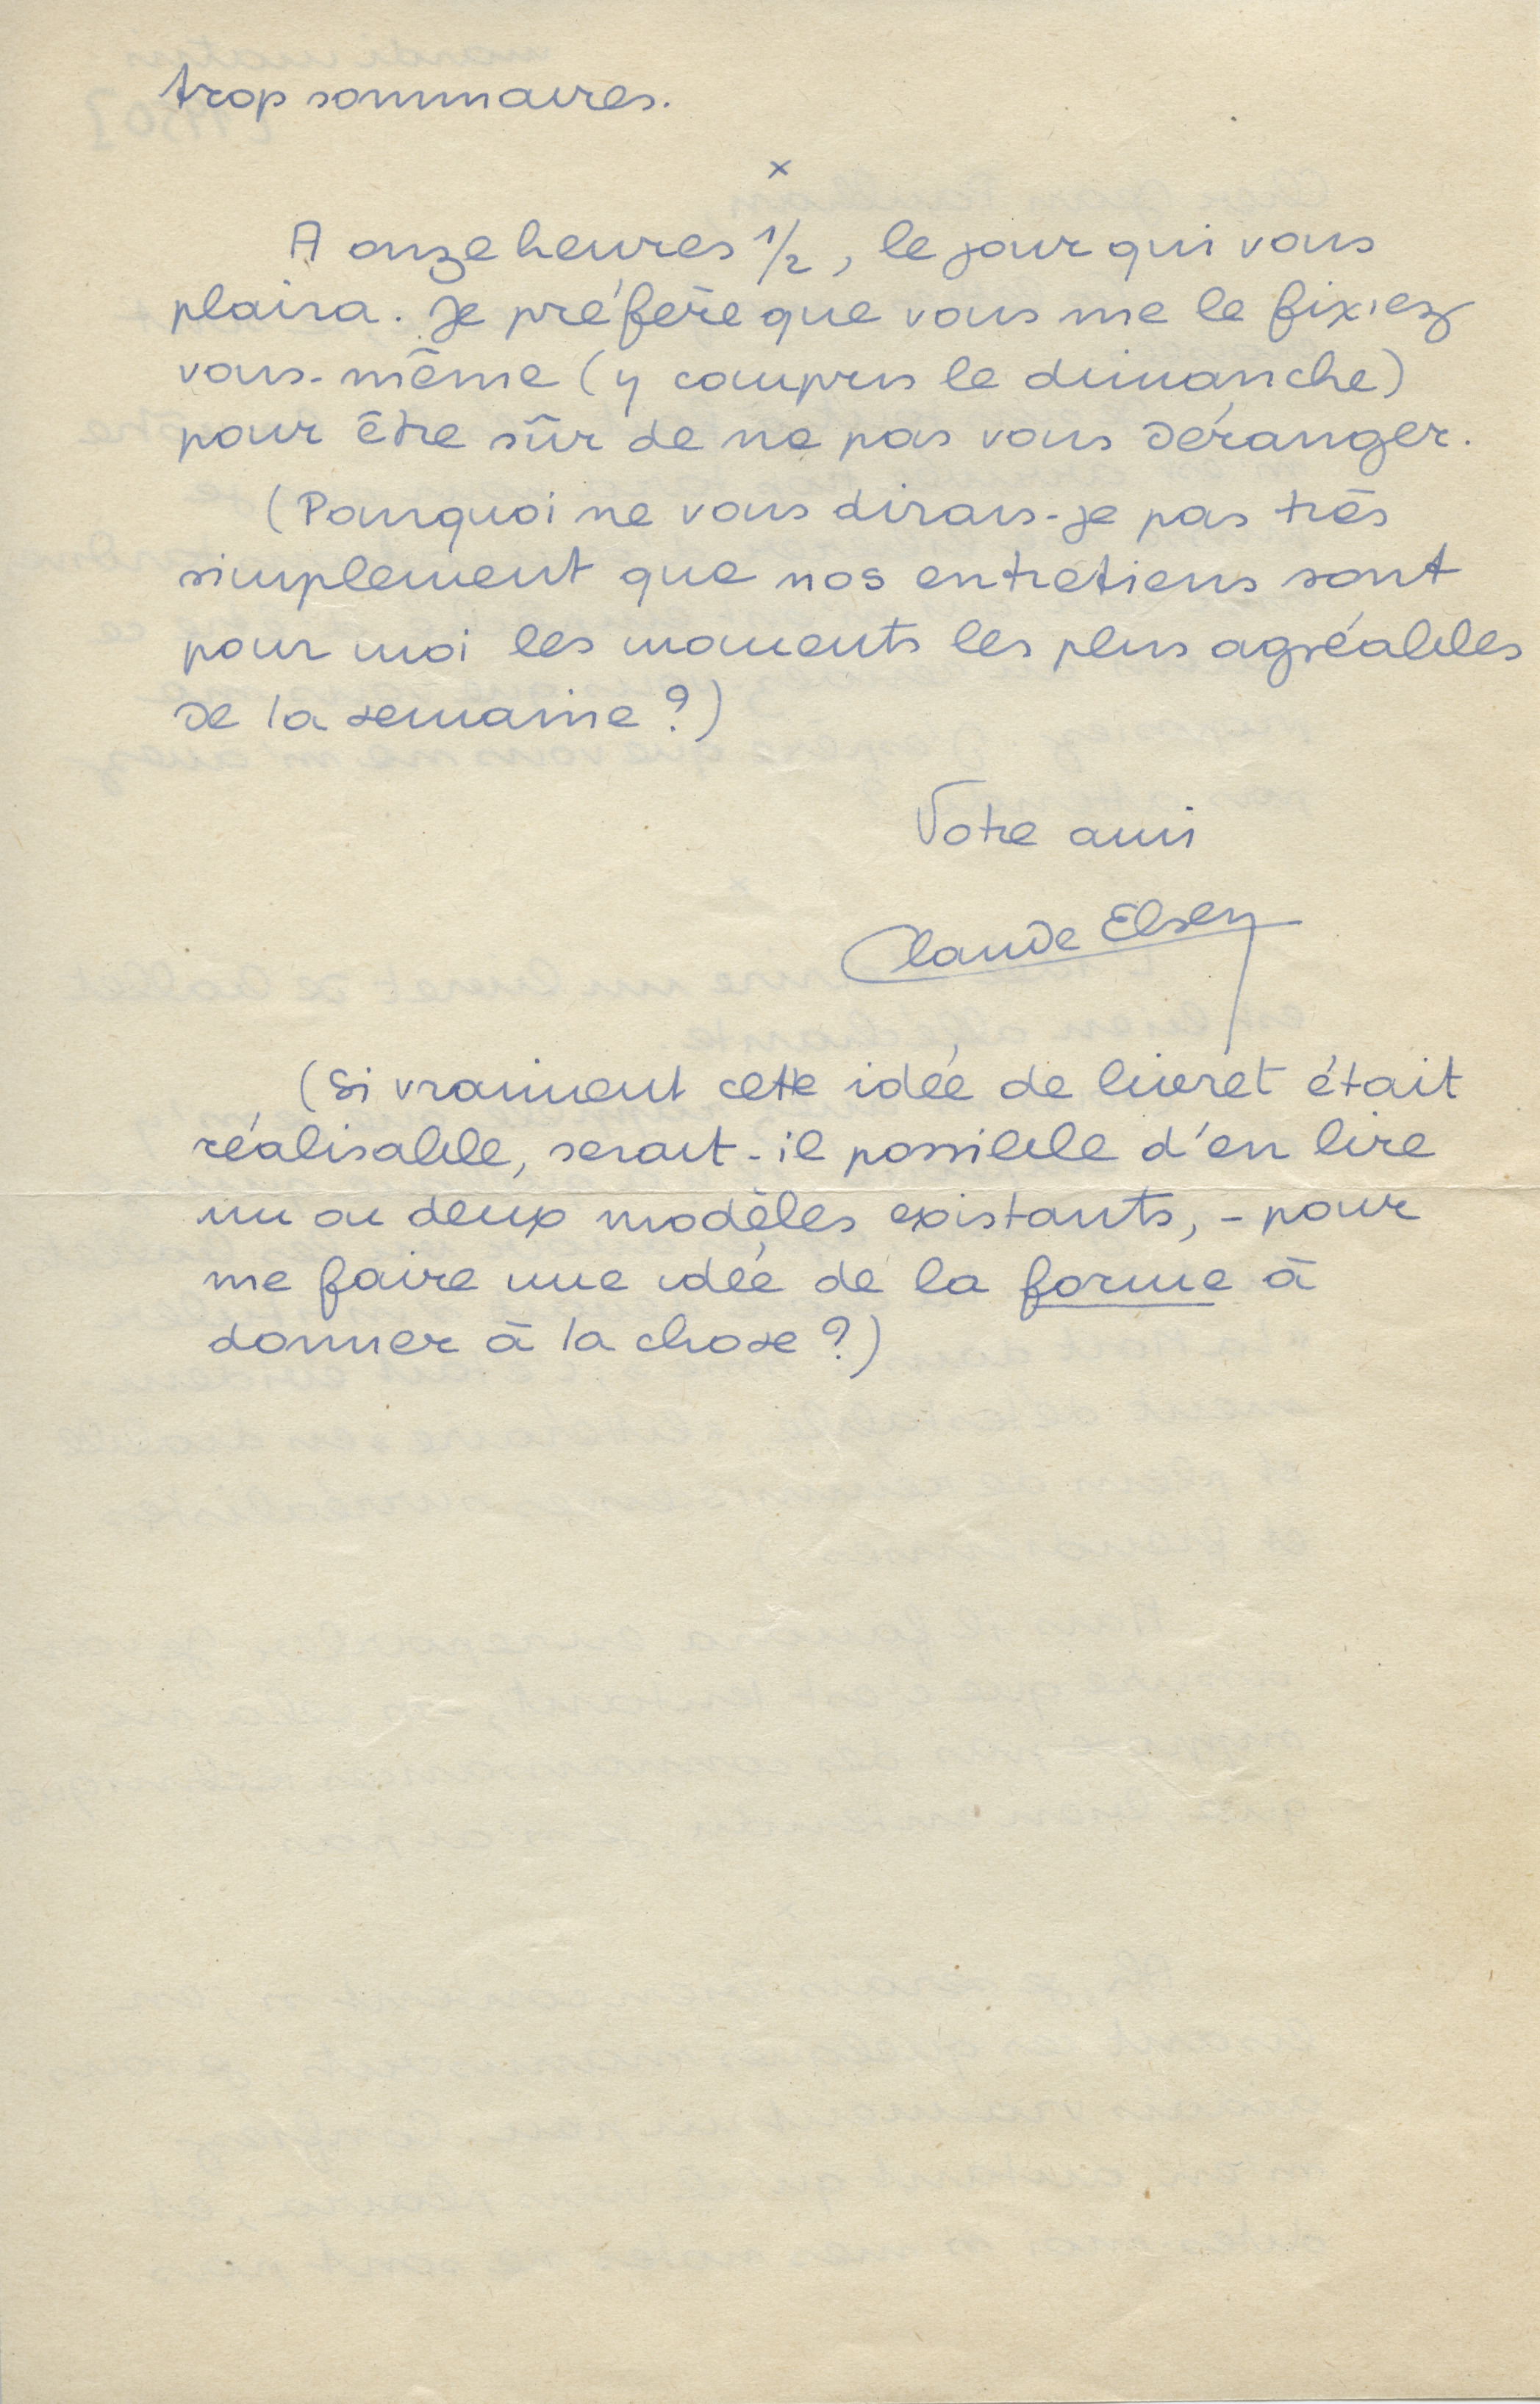 trop sommaires.
x
A onze heures 1/2, le jour qui vous
plaira. Je préfère que vous me le fixiez
vous-même (y compris le dimanche)
pour être sûr de ne pas vous déranger.
(Pourquoi ne vous dirais-je pas très
simplement que nos entretiens sont
pour moi les moments les plus agréables
de la semaine ?)
Votre ami
Claude Elsen
(Si vraiment cette idée de livret était
réalisable, serait-il possible d'en lire
un ou deux modèles existants, - pour
me faire une idée de la forme à
donner à la chose ?)